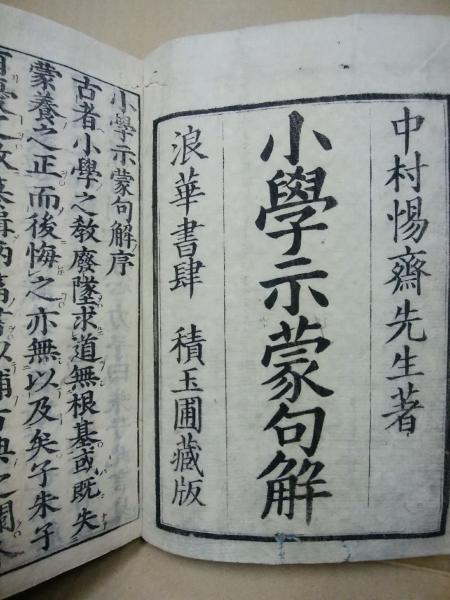 中村惕齋先生著
小學示蒙句解
浪華書肆 積玉圃藏版
小學示蒙句解序
古者小學之教廢墜求道無根基或既失
蒙養之正而後悔之亦無以及矣子朱子